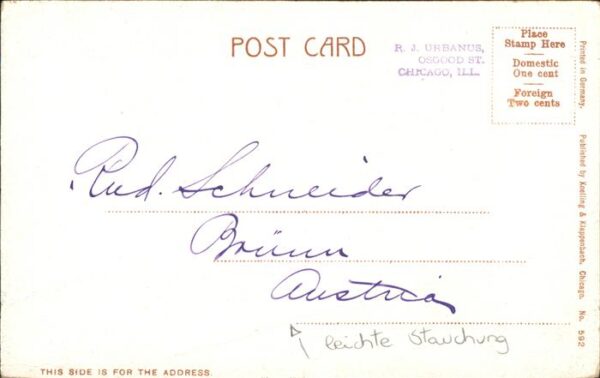 POST CARD
R. J. URBANUS,
OSGOOD ST.
CHICAGO, ILL.
Place
Stamp Here
Domestic
One cent
Foreign
Two cents
Printed in Germany.
Published by Knelling & Klappenbach, Chicago. No. 592
Rud. Schneider
Brünn
Austria
leichte Stauchung
THIS SIDE IS FOR THE ADDRESS.